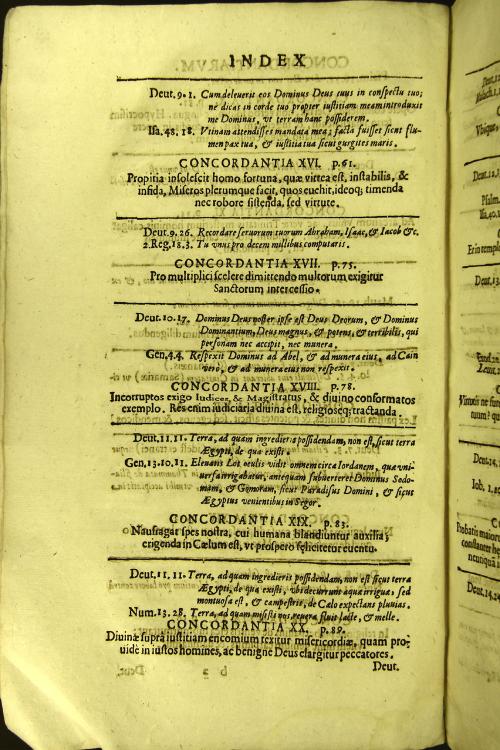 INDEX
Deut. 9. 1. Cum deleuerit eos Dominus Deus tuus in conspectu tuo;
ne dicas in corde tuo propter iustitiam meam introduxit
me Dominus, vt terram hanc possiderem.
Isa. 48. 18. Vtinam attendisses mandata mea; facta fuisset sicut flu-
men pax tua, & iustitia tua sicut gurgites maris.
CONCORDANTIA XVI. p. 61.
Propitia insolescit homo fortuna, quæ vitrea est, instabilis, &
infida, Miseros plerumque facit, quos euehit, ideoq; timenda
nec robore sistenda, sed virtute.
Deut. 9. 26. Recordare seruorum tuorum Abraham, Isaac, & Iacob &c.
2. Reg. 18. 3. Tu vnus pro decem millibus computaris.
CONCORDANTIA XVII. p. 75.
Pro multiplici scelere dimittendo multorum exigitur
Sanctorum intercessio.
Deut. 10. 17. Dominus Deus noster ipse est Deus Deorum, & Dominus
Dominantium, Deus magnus, & potens, & terribilis, qui
personam nec accipit, nec munera.
Gen. 4. 4. Respexit Dominus ad Abel, & ad munera eius, ad Cain
vero, & ad munera eius non respexit.
CONCORDANTIA XVIII. p. 78.
Incorruptos exigo Iudices, & Magistratus, & diuino conformatos
exemplo. Res enim iudiciaria diuina est, religioseq; tractanda.
Deut. 11. 11. Terra, ad quam ingrederis possidendam, non est, sicut terra
Ægypti, de qua existi.
Gen. 13. 10. 11. Eleuatis Lot oculis vidit omnem circa Iordanem, qua vni-
uersa irrigabatur, antequam subuerteret Dominus Sodo-
mam, & Gomoram, sicut Paradisus Domini, & sicut
Ægyptus venientibus in Segor.
CONCORDANTIA XIX. p. 83.
Naufragat spes nostra, cui humana blandiuntur auxilia;
erigenda in Cælum est, vt prospero felicitetur euentu.
Deut. 11. 11. Terra, ad quam ingredieris possidendam, non est sicut terra
Ægypti, de qua existi, vbi decurrunt aqua irrigua: sed
montuosa est, & campestris, de Calo expectans pluuias.
Num. 13. 28. Terra, ad quam misisti nos, reuera fluit lacte, & melle.
CONCORDANTIA XX. p. 89.
Diuinæ supra iustitiam encomium texitur misericordiæ, quam pro-
uide in iustos homines, ac benigne Deus elargitur peccatores.
Deut.